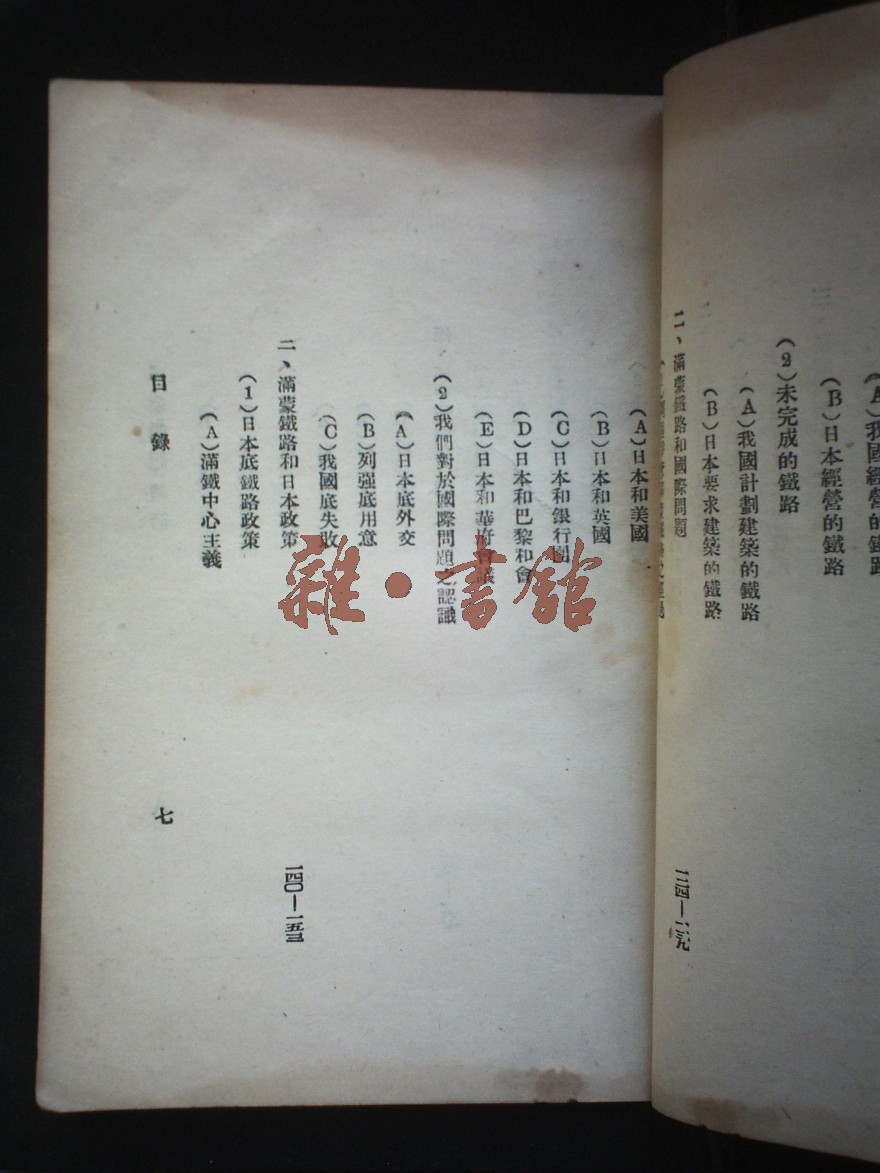 (A)我國經營的鐵路
(B)日本經營的鐵路
(2)未完成的鐵路
(A)我國計劃建築的鐵路
(B)日本要求建築的鐵路
二、滿蒙鐵路和國際問題 一三四—一三九
(A)日本和美國
(B)日本和英國
(C)日本和銀行團
(D)日本和巴黎和會
(E)日本和華府會議
(2)我們對於國際問題之認識
(A)日本底外交
(B)列强底用意
(C)我國底失敗
二、滿蒙鐵路和日本政策 一四〇—一五三
(1)日本底鐵路政策
(A)滿鐵中心主義
目錄 七
雜·書館